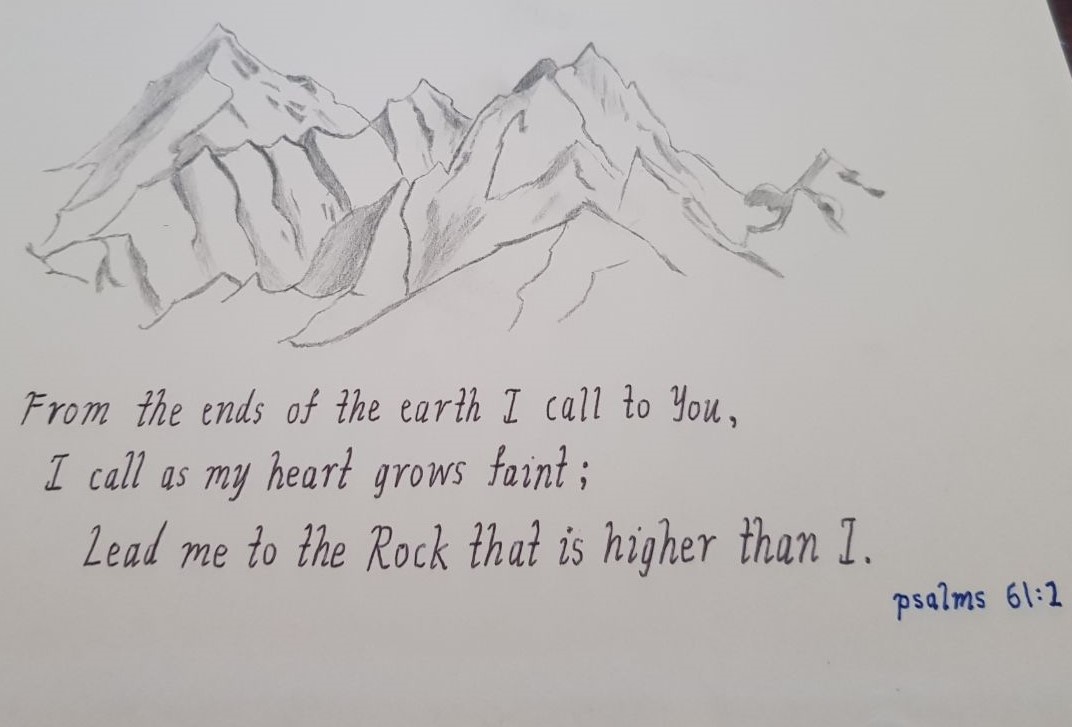 From the ends of the earth I call to You,
I call as my heart grows faint;
Lead me to the Rock that is higher than I.
psalms 61:2